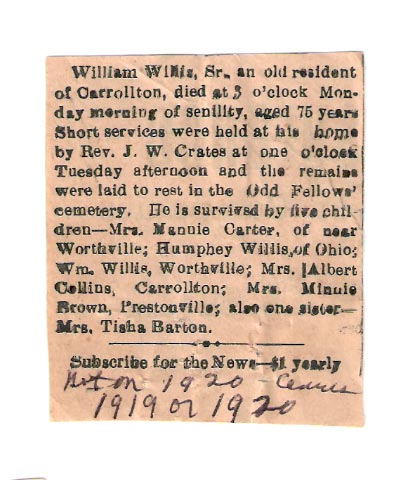 William Willis, Sr., an old resident
of Carrollton, died at 3 o'clock Mon-
day morning of senility, aged 75 years
Short services were held at his home
by Rev. J. W. Crates at one o'clock
Tuesday afternoon and the remains
were laid to rest in the Odd Fellows'
cemetery. He is survived by five chil-
dren—Mrs. Mannie Carter, of near
Worthville; Humphey Willis, of Ohio;
Wm. Willis, Worthville; Mrs. Albert
Collins, Carrollton; Mrs. Minnie
Brown, Prestonville; also one sister—
Mrs. Tisha Barton.
Subscribe for the News—$1 yearly
Not on 1920
1919 or 1920